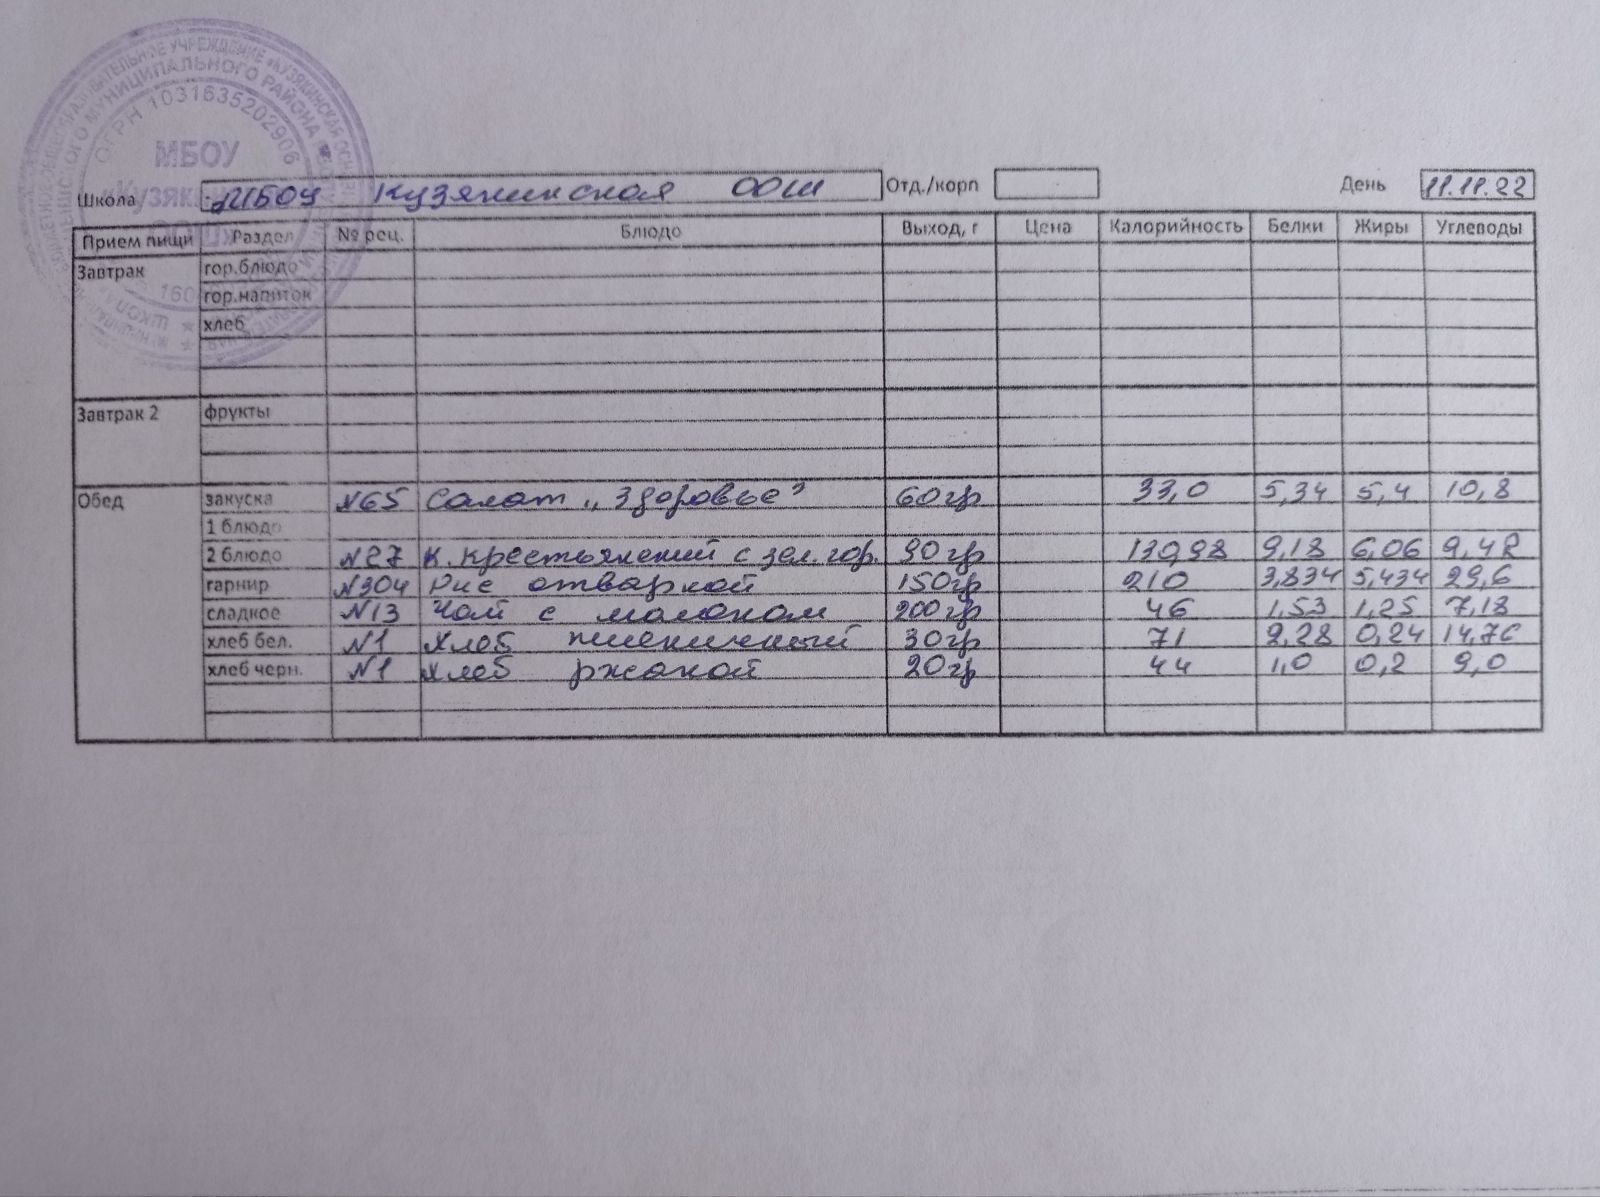 МБОУ
ОГРН 1031635202906
Школа МБОУ Кузякинская ООШ Отд./корп День 11.11.22
Прием пищи Раздел № рец. Блюдо Выход, г Цена Калорийность Белки Жиры Углеводы
Завтрак гор.блюдо
гор.напиток
хлеб
Завтрак 2 фрукты
Обед закуска №65 Салат „Здоровье" 60гр 33,0 5,34 5,4 10,8
1 блюдо
2 блюдо №27 К.крестьянский с зел.гор. 90гр 130,98 9,18 6,06 9,42
гарнир №304 Рис отварной 150гр 210 3,834 5,434 29,6
сладкое №13 Чай с молоком 200гр 46 1,53 1,25 7,18
хлеб бел. №1 Хлеб пшеничный 30гр 71 2,28 0,24 14,76
хлеб черн. №1 Хлеб ржаной 20гр 44 1,0 0,2 9,0